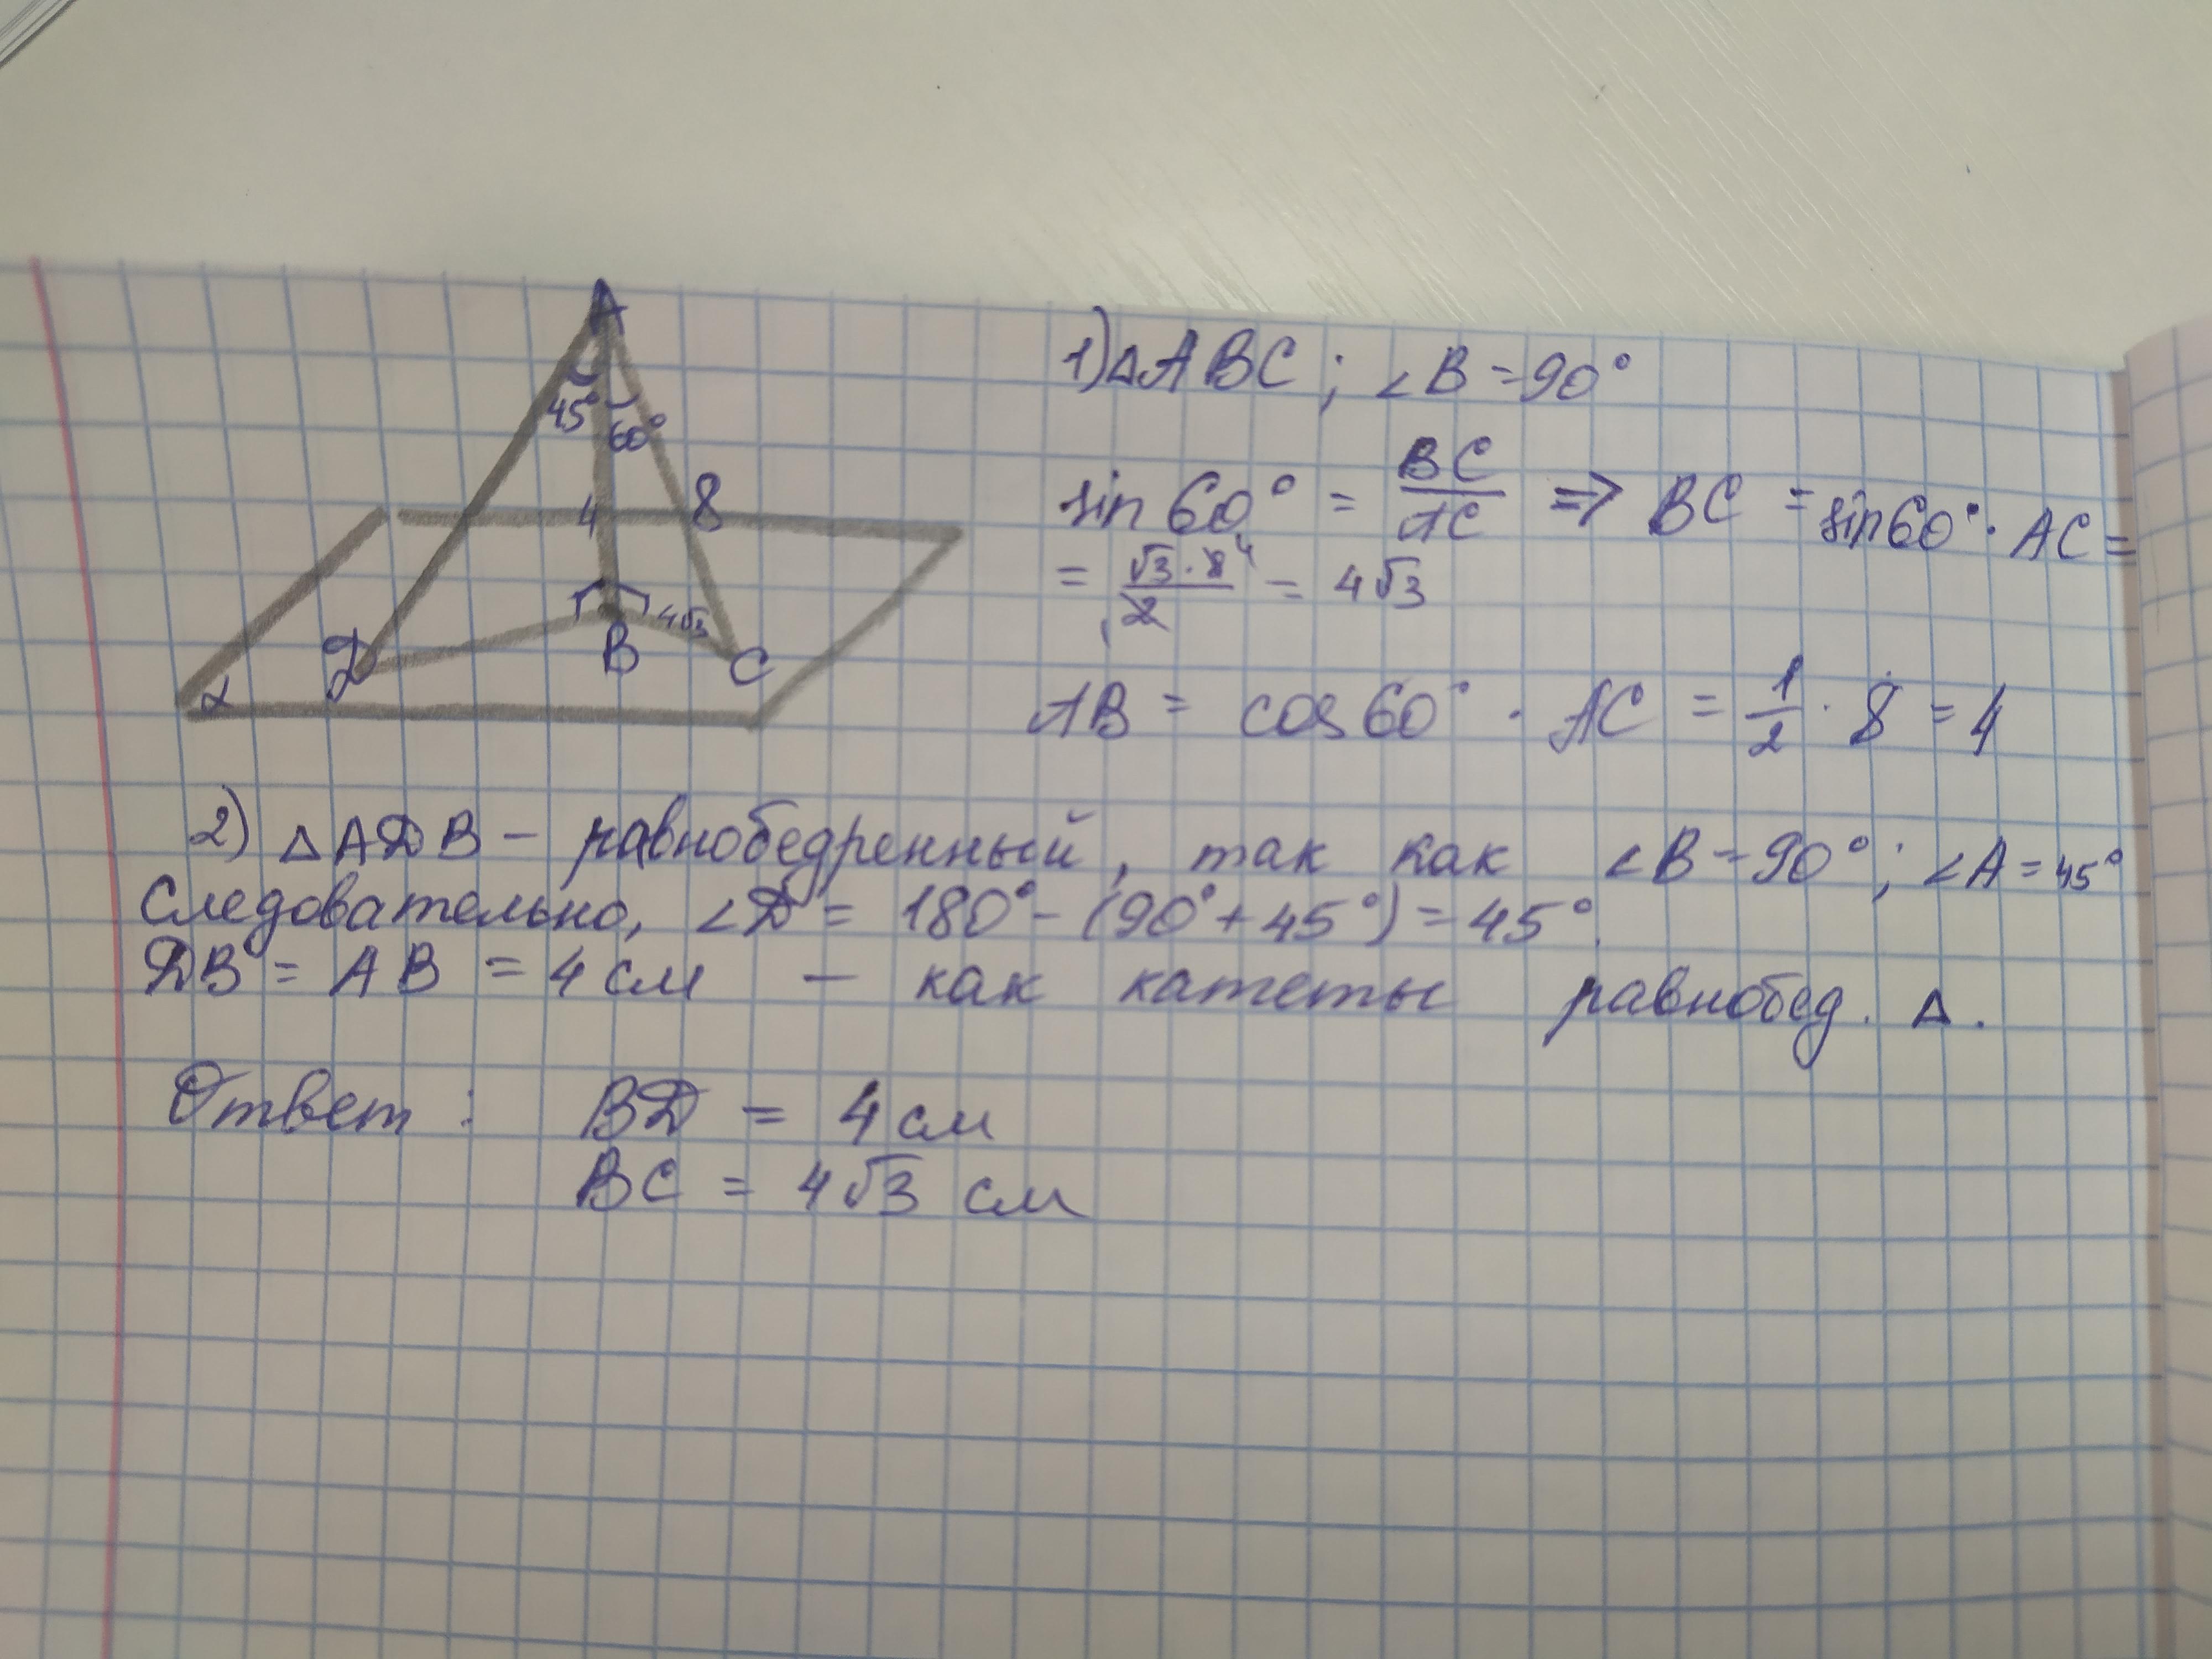 A
45° 60°
4 8
Д B 4√3 C
α
1) △ABC ; ∠B = 90°
sin 60° = BC/AC => BC = sin 60° · AC =
= √3 · 8/2 4 = 4√3
AB = cos 60° · AC = 1/2 · 8 = 4
2) △АДВ – равнобедренный, так как ∠B = 90° ; ∠A = 45°
Следовательно, ∠Д = 180° – (90° + 45°) = 45°.
ДВ = АВ = 4 см – как катеты равнобед. △.
Ответ : ВД = 4 см
ВС = 4√3 см